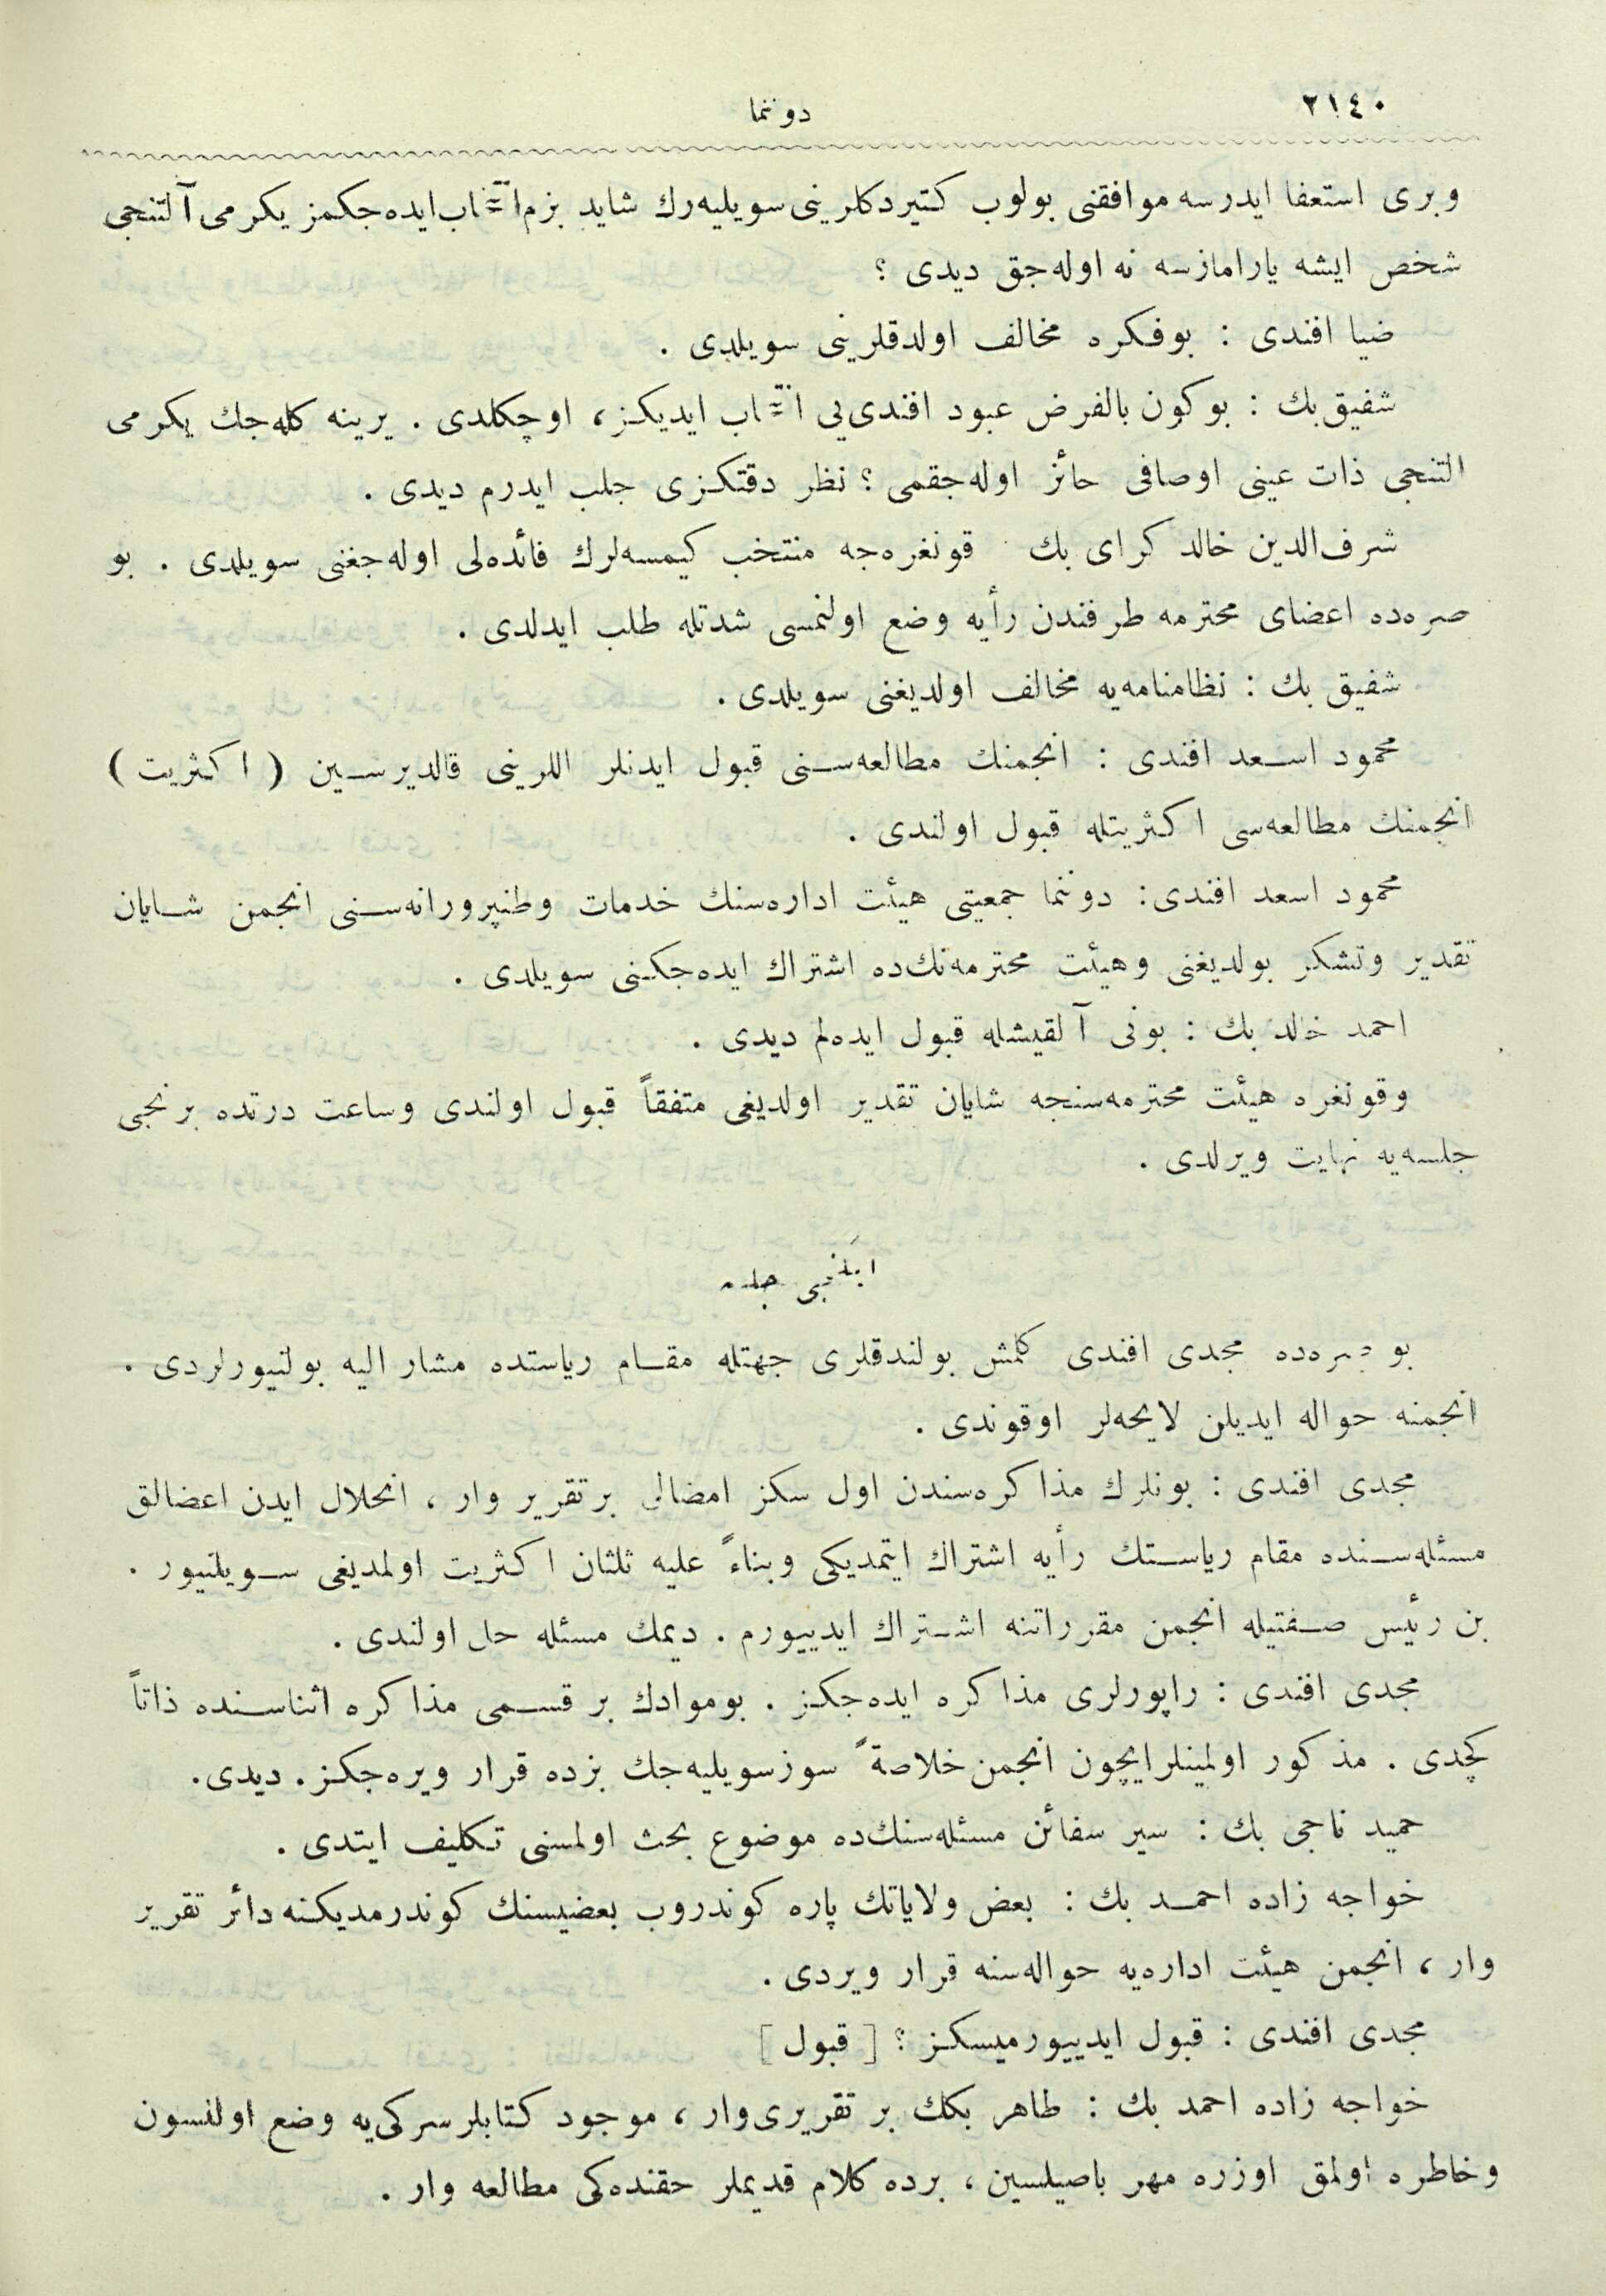 ٢١٤٠
دوننما
وبرى استعفا ايدرسه موافقنى بولوب كتيردكلرينى سويليه‌رك شايد بزم انتخاب ايده‌جكمز يكرمى آلتنجى
شخص ايشه يارامازسه نه اوله‌جق ديدى ؟
ضيا افندى : بوفكره مخالف اولدقلرينى سويلدى .
شفيق بك : بوكون بالفرض عبود افندى‌يى انتخاب ايديكز، اوچكلدى . يرينه كله‌جك يكرمى
التنجى ذات عينى اوصافى حائز اوله‌جقمى ؟ نظر دقتكزى جلب ايدرم ديدى .
شرف‌الدين خالد كراى بك قونغره‌جه منتخب كيمسه‌لرك فائده‌لى اوله‌جغنى سويلدى . بو
صره‌ده اعضاى محترمه طرفندن رأيه وضع اولنمسى شدتله طلب ايدلدى .
شفيق بك : نظامنامه‌يه مخالف اولديغنى سويلدى .
محمود اسعد افندى : انجمنك مطالعه‌سنى قبول ايدنلر اللرينى قالديرسين ( اكثريت )
انجمنك مطالعه‌سى اكثريتله قبول اولندى .
محمود اسعد افندى: دوننما جمعيتى هيئت اداره‌سنك خدمات وطنپرورانه‌سنى انجمن شايان
تقدير وتشكر بولديغنى وهيئت محترمه‌نك‌ده اشتراك ايده‌جكنى سويلدى .
احمد خالد بك : بونى آلقيشله قبول ايده‌لم ديدى .
وقونغره هيئت محترمه‌سنجه شايان تقدير اولديغى متفقاً قبول اولندى وساعت درتده برنجى
جلسه‌يه نهايت ويرلدى .
ايكنجى جلسه
بو صره‌ده مجدى افندى كلمش بولندقلرى جهتله مقام رياستده مشار اليه بولنيورلردى .
انجمنه حواله ايديلن لايحه‌لر اوقوندى .
مجدى افندى : بونلرك مذاكره‌سندن اول سكز امضالى برتقرير وار ، انحلال ايدن اعضالق
مسئله‌سنده مقام رياستك رأيه اشتراك ايتمديكى وبناءً عليه ثلثان اكثريت اولمديغى سويلنيور .
بن رئيس صفتيله انجمن مقرراتنه اشتراك ايدييورم . ديمك مسئله حل اولندى .
مجدى افندى : راپورلرى مذاكره ايده‌جكز . بوموادك بر قسمى مذاكره اثناسنده ذاتاً
كچدى . مذكور اولمينلرايچون انجمن خلاصةً سوزسويليه‌جك بزده قرار ويره‌جكز. ديدى.
حميد ناجى بك : سير سفائن مسئله‌سنك‌ده موضوع بحث اولمسنى تكليف ايتدى .
خواجه زاده احمد بك : بعض ولاياتك پاره كوندروب بعضيسنك كوندرمديكنه دائر تقرير
وار ، انجمن هيئت اداره‌يه حواله‌سنه قرار ويردى .
مجدى افندى : قبول ايدييورميسكز ؟ [ قبول ]
خواجه زاده احمد بك : طاهر بكك بر تقريرى‌وار ، موجود كتابلر سركى‌يه وضع اولنسون
وخاطره اولمق اوزره مهر باصيلسين ، برده كلام قديملر حقنده‌كى مطالعه وار .